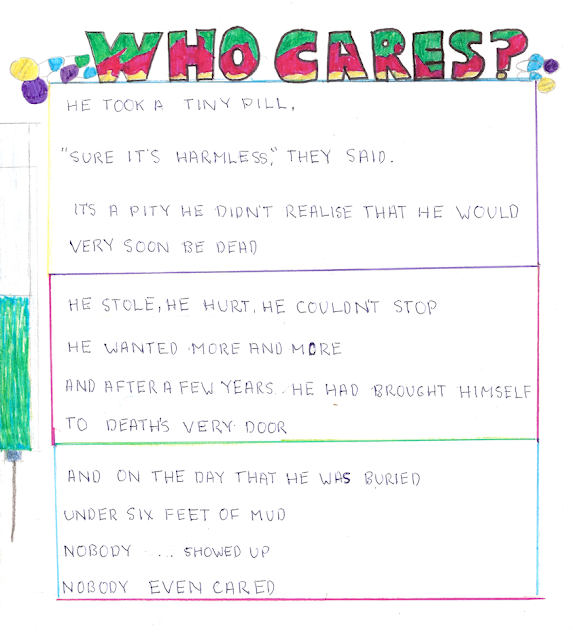 WHO CARES?
HE TOOK A TINY PILL,
"SURE IT'S HARMLESS," THEY SAID.
IT'S A PITY HE DIDN'T REALISE THAT HE WOULD
VERY SOON BE DEAD
HE STOLE, HE HURT, HE COULDN'T STOP
HE WANTED MORE AND MORE
AND AFTER A FEW YEARS.. HE HAD BROUGHT HIMSELF
TO DEATH'S VERY DOOR
AND ON THE DAY THAT HE WAS BURIED
UNDER SIX FEET OF MUD
NOBODY ... SHOWED UP
NOBODY EVEN CARED